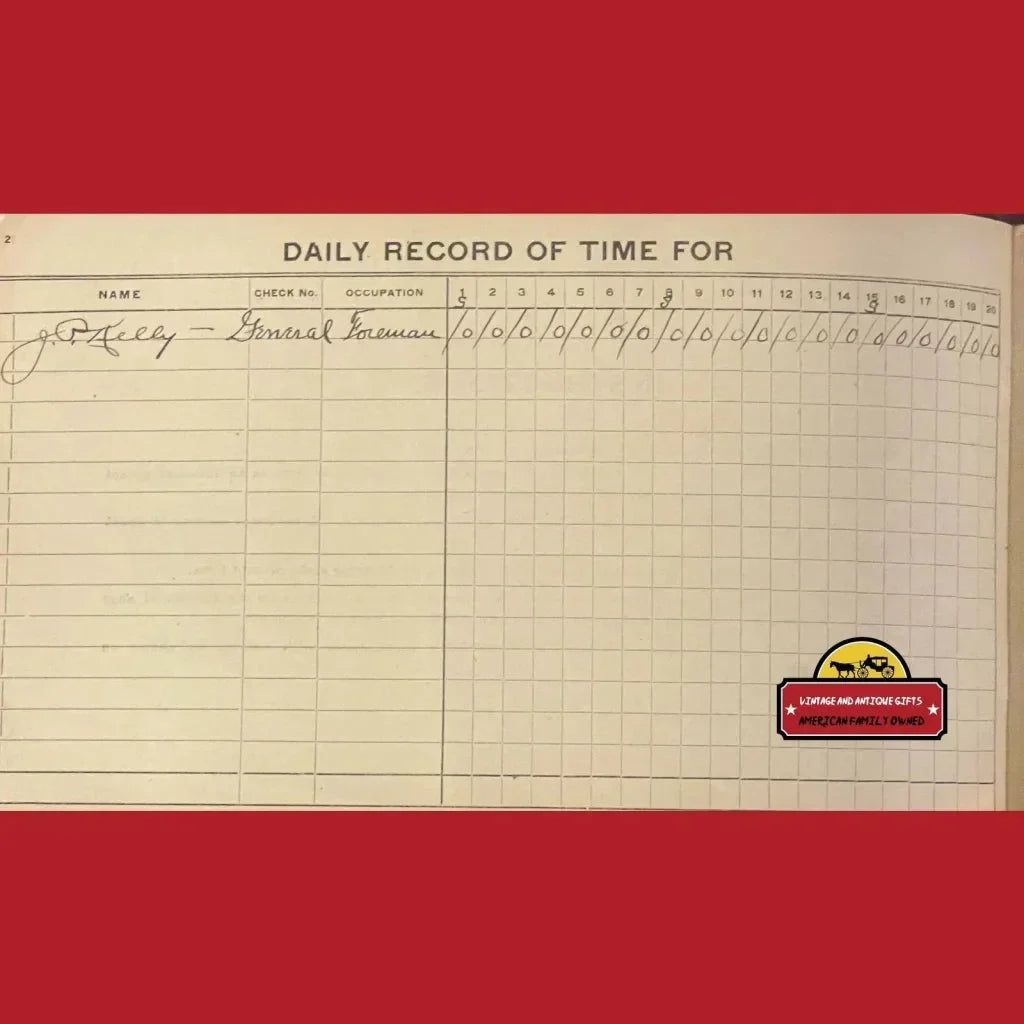 2
DAILY RECORD OF TIME FOR
NAME CHECK No. OCCUPATION 1 2 3 4 5 6 7 8 9 10 11 12 13 14 15 16 17 18 19 20
S S S
J. P. Kelly — General Foreman / 0 / 0 / 0 / 0 / 0 / 0 / 0 / 0 / 0 / 0 / 0 / 0 / 0 / 0 / 0 / 0 / 0 / 0 / 0 / 0
VINTAGE AND ANTIQUE GIFTS
AMERICAN FAMILY OWNED